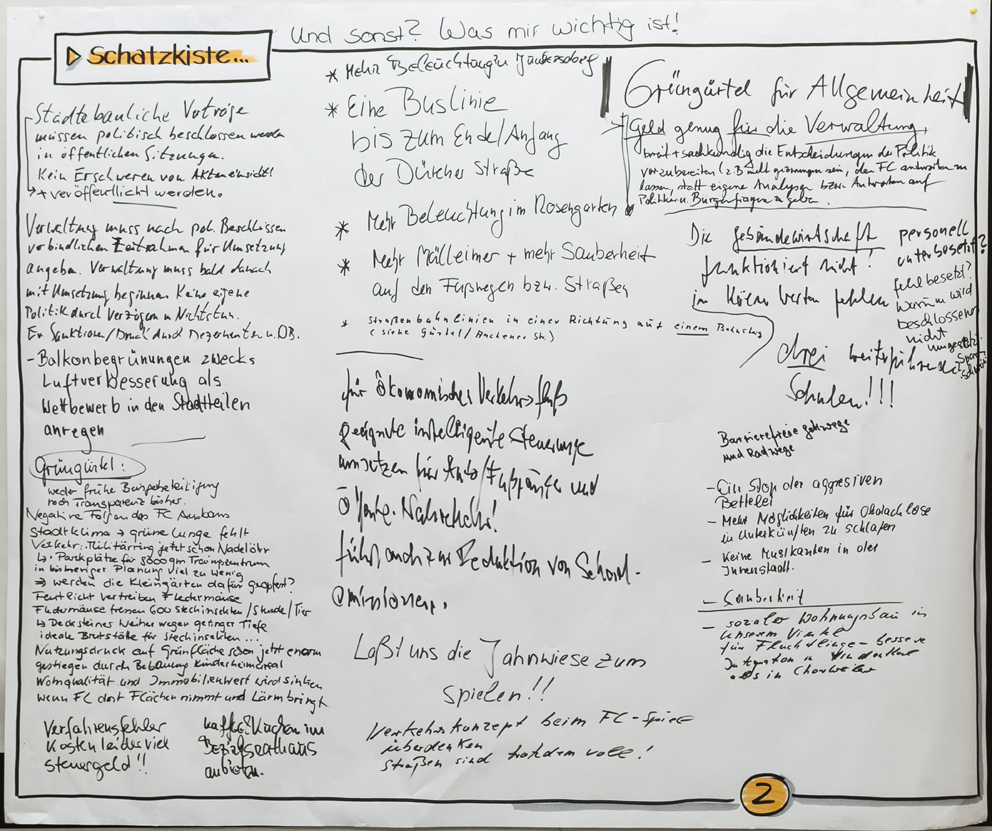 Und sonst? Was mir wichtig ist!
Schatzkiste...
Städtebauliche Verträge
müssen politisch beschlossen werden
in öffentlichen Sitzungen.
Kein Erschweren von Akteneinsicht
+ veröffentlicht werden.
Verwaltung muss nach pol. Beschlüssen
verbindlichen Zeitrahmen für Umsetzung
angeben. Verwaltung muss bald danach
mit Umsetzung beginnen. Keine eigene
Politik durch Verzögern u. Nichtstun.
Sanktion/Druck durch Dezernenten u. OB.
- Balkonbegrünungen zwecks
Luftverbesserung als
Wettbewerb in den Stadtteilen
anregen
Grüngürtel:
weder frühe Bürgerbeteiligung
noch Transparenz bisher.
Negative Folgen des FC Ausbaus
Stadtklima → grüne Lunge fehlt
Verkehr: Militärring jetzt schon Nadelöhr
↳ Parkplätze für 5000 qm Trainzentrum
in bisheriger Planung viel zu wenig
⇒ werden die Kleingärten dafür geopfert?
vertreiben Fledermäuse
Fledermäuse fressen 600 Stechinsekten/Stunde/Tier
↳ Decksteiner Weiher wegen geringer Tiefe
ideale Brutstätte für Stechinsekten...
Nutzungsdruck auf Grünfläche schon jetzt enorm
gestiegen durch Bebauung Kinderheimareal
Wohnqualität und Immobilienwert wird sinken
wenn FC dort Flächen nimmt und Lärm bringt
Verfahrensfehler
kosten leider viel
Steuergeld!!
Kaffee + Kuchen im
Bezirksrathaus
anbieten.
* Mehr Beleuchtung in Junkersdorf
* Eine Buslinie
bis zum Ende/Anfang
der Dürener Straße
* Mehr Beleuchtung im Rosengarten
* Mehr Mülleimer + mehr Sauberkeit
auf den Fußwegen bzw. Straßen
* Straßenbahnlinien in einer Richtung auf einem Bahnsteig
(siehe Gürtel/Aachener Str.)
für ökonomischen Verkehrsfluß
geeignete intelligente Steuerung
umsetzen für Auto/Fußgänger und
öffentl. Nahverkehr!
führt auch zur Reduktion von Schad-
emissionen.
Laßt uns die Jahnwiese zum
Spielen!!
Verkehrskonzept beim FC-Spiel
überdenken
Straßen sind trotzdem voll!
Grüngürtel für Allgemeinheit
Geld genug für die Verwaltung,
breit + sachkundig die Entscheidungen der Politik
vorzubereiten (z.B. nicht gezwungen sein, den FC antworten zu
lassen, statt eigene Analysen bzw. Antworten auf
Politiker u. Bürgerfragen zu geben.
Die Gebäudewirtschaft
funktioniert nicht!
in Köln Westen fehlen
drei weiterführende
Schulen!!!
personell
unterbesetzt?
fehlbesetzt?
warum wird
beschlossenes
nicht
umgesetzt?
Barrierefreie Gehwege
und Radwege
- Ein Stop der aggresiven
Bettelei
- Mehr Möglichkeiten für Obdachlose
in Unterkünften zu schlafen
- Keine Musikanten in der
Innenstadt.
- Sauberkeit
- sozialer Wohnungsbau in
unserem Viertel
für Flüchtlinge - bessere
Integration
als in Chorweiler
2